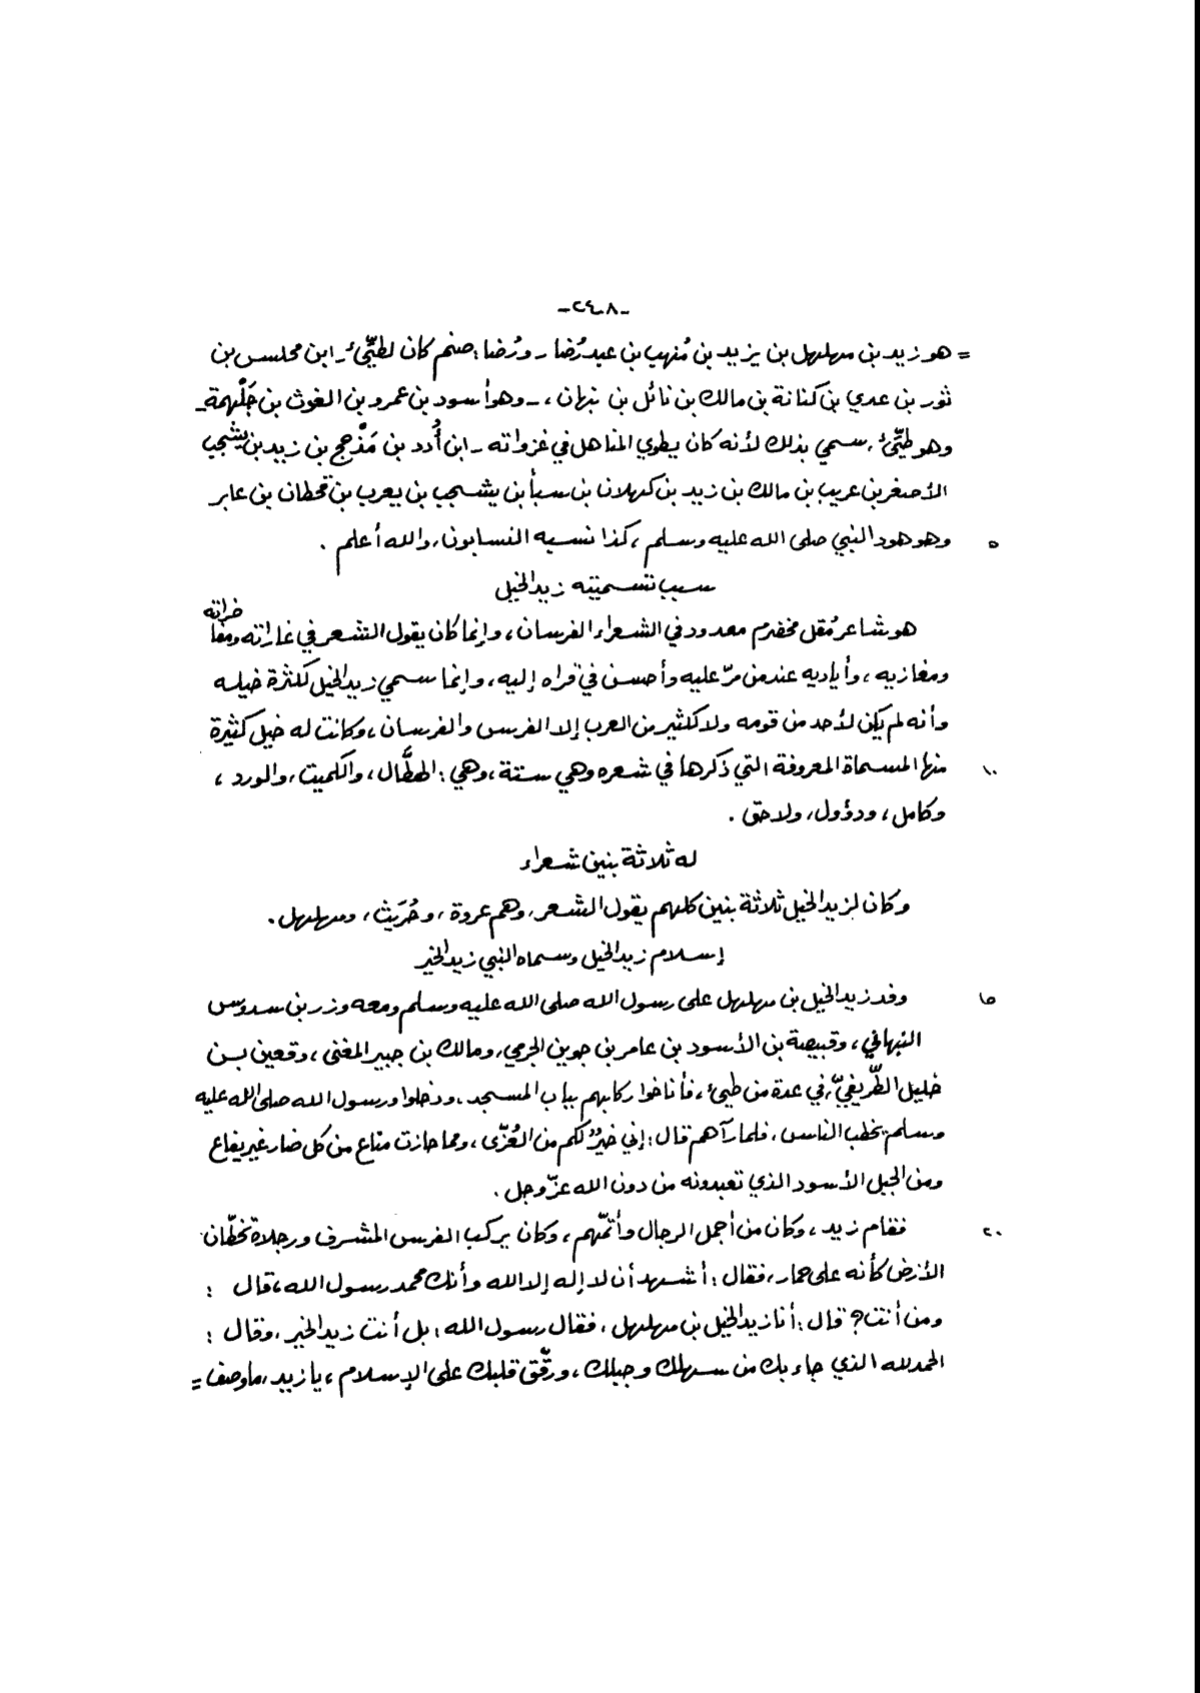 -٢٤٠٨-
= هو زيد بن مهلهل بن يزيد بن مُنهِب بن عبد رُضا ـ ورُضا : صنم كان لطيِّئ ـ ابن محلس بن
ثور بن عدي بن كنانة بن مالك بن نائل بن نبهان ، ـ وهو أسود بن عمرو بن الغوث بن جَلْهمة ـ
وهو طيِّئ ، سمي بذلك لأنه كان يطوي المناهل في غزواته ـ ابن أُدد بن مَذْحج بن زيد بن يشجب
الأصغر بن عريب بن مالك بن زيد بن كهلان بن سبأ بن يشجب بن يعرب بن قحطان بن عابر
٥ وهو هود النبي صلى الله عليه وسلم ، كذا نسبه النسابون ، والله أعلم .
سبب تسميته زيد الخيل
هو شاعر مُقل مخضرم معدود في الشعراء الفرسان ، وإنما كان يقول الشعر في غاراته ومفاخراته
ومغازيه ، وأياديه عند من مرّ عليه وأحسن في قراه إليه ، وإنما سمي زيد الخيل لكثرة خيله
وأنه لم يكن لأحد من قومه ولا لكثير من العرب إلا الفرس والفرسان ، وكانت له خيل كثيرة
١٠ منها المسماة المعروفة التي ذكرها في شعره وهي ستة ، وهي : الهطَّال ، والكميت ، والورد ،
وكامل ، ودؤول ، ولاحق .
له ثلاثة بنين شعراء
وكان لزيد الخيل ثلاثة بنين كلهم يقول الشعر ، وهم عروة ، وحُرَيث ، ومهلهل .
إسلام زيد الخيل وسماه النبي زيد الخير
١٥ وفد زيد الخيل بن مهلهل على رسول الله صلى الله عليه وسلم ومعه وزر بن سدوس
النبهاني ، وقبيصة بن الأسود بن عامر بن جوين الجرمي ، ومالك بن جبير المغنى ، وقعين بن
خليل الطَّريفيّ ، في عدة من طيئ ، فأناخوا ركابهم بباب المسجد ، ودخلوا ورسول الله صلى الله عليه
وسلم يخطب الناس ، فلما رآهم قال : إني خيرٌ لكم من العُزّى ، ومما حازت مناع من كل ضار غير يفاع
ومن الجبل الأسود الذي تعبدونه من دون الله عزّ وجل .
٢٠ فقام زيد ، وكان من أجمل الرجال وأتمّهم ، وكان يركب الفرس المشرف ورجلاه تخطّان
الأرض كأنه على حمار ، فقال : أشهد أن لا إله إلا الله وأنك محمد رسول الله ، قال :
ومن أنت؟ قال : أنا زيد الخيل بن مهلهل ، فقال رسول الله : بل أنت زيد الخير ، وقال :
الحمد لله الذي جاء بك من سهلك وجبلك ، ورقّق قلبك على الإسلام ، يا زيد ، ما وصف =